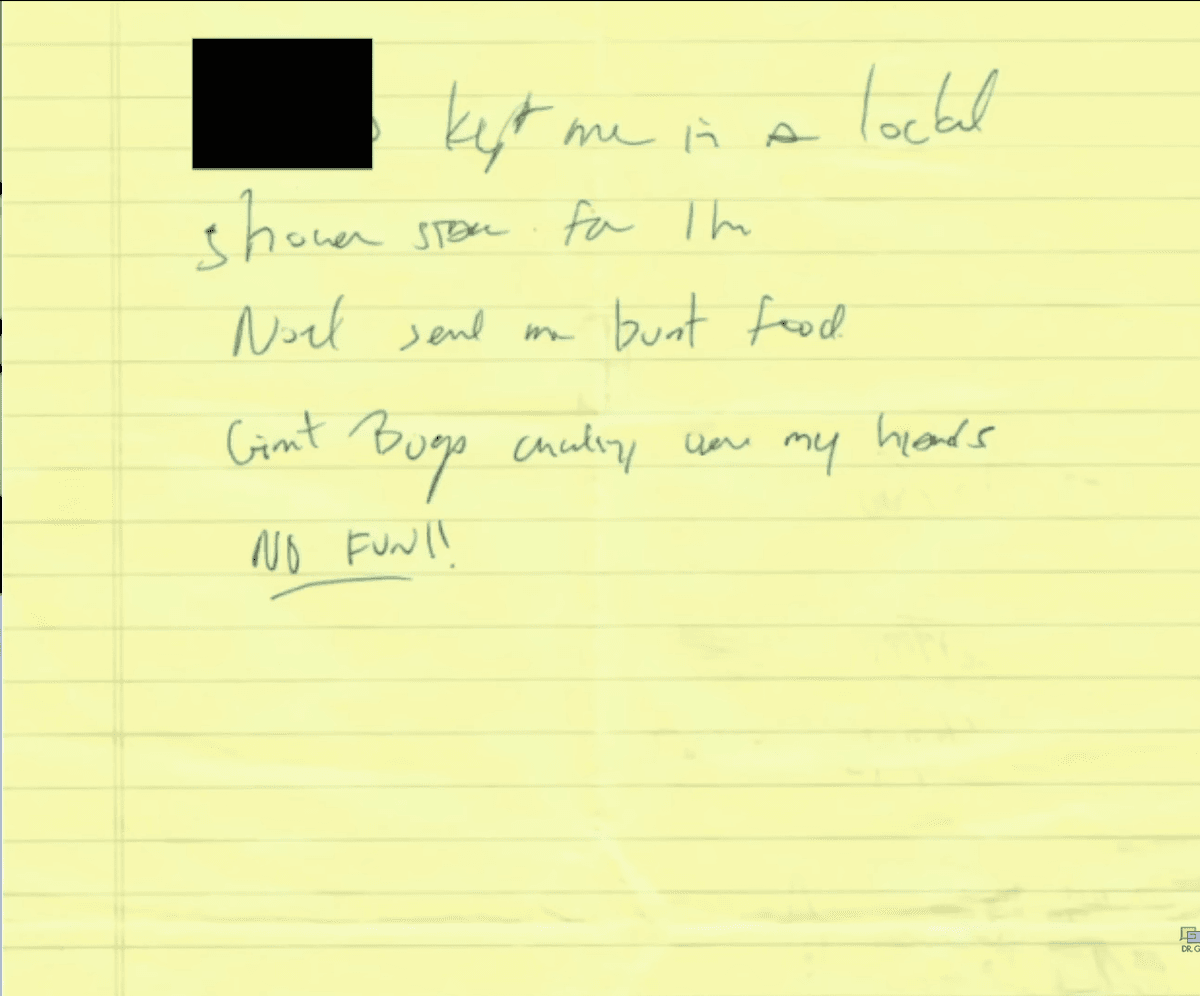 kept me in a locked
shower stall for 1 hr
Noel sent me burnt food
Giant Bugs crawling over my hands
NO FUN!!
DR. G